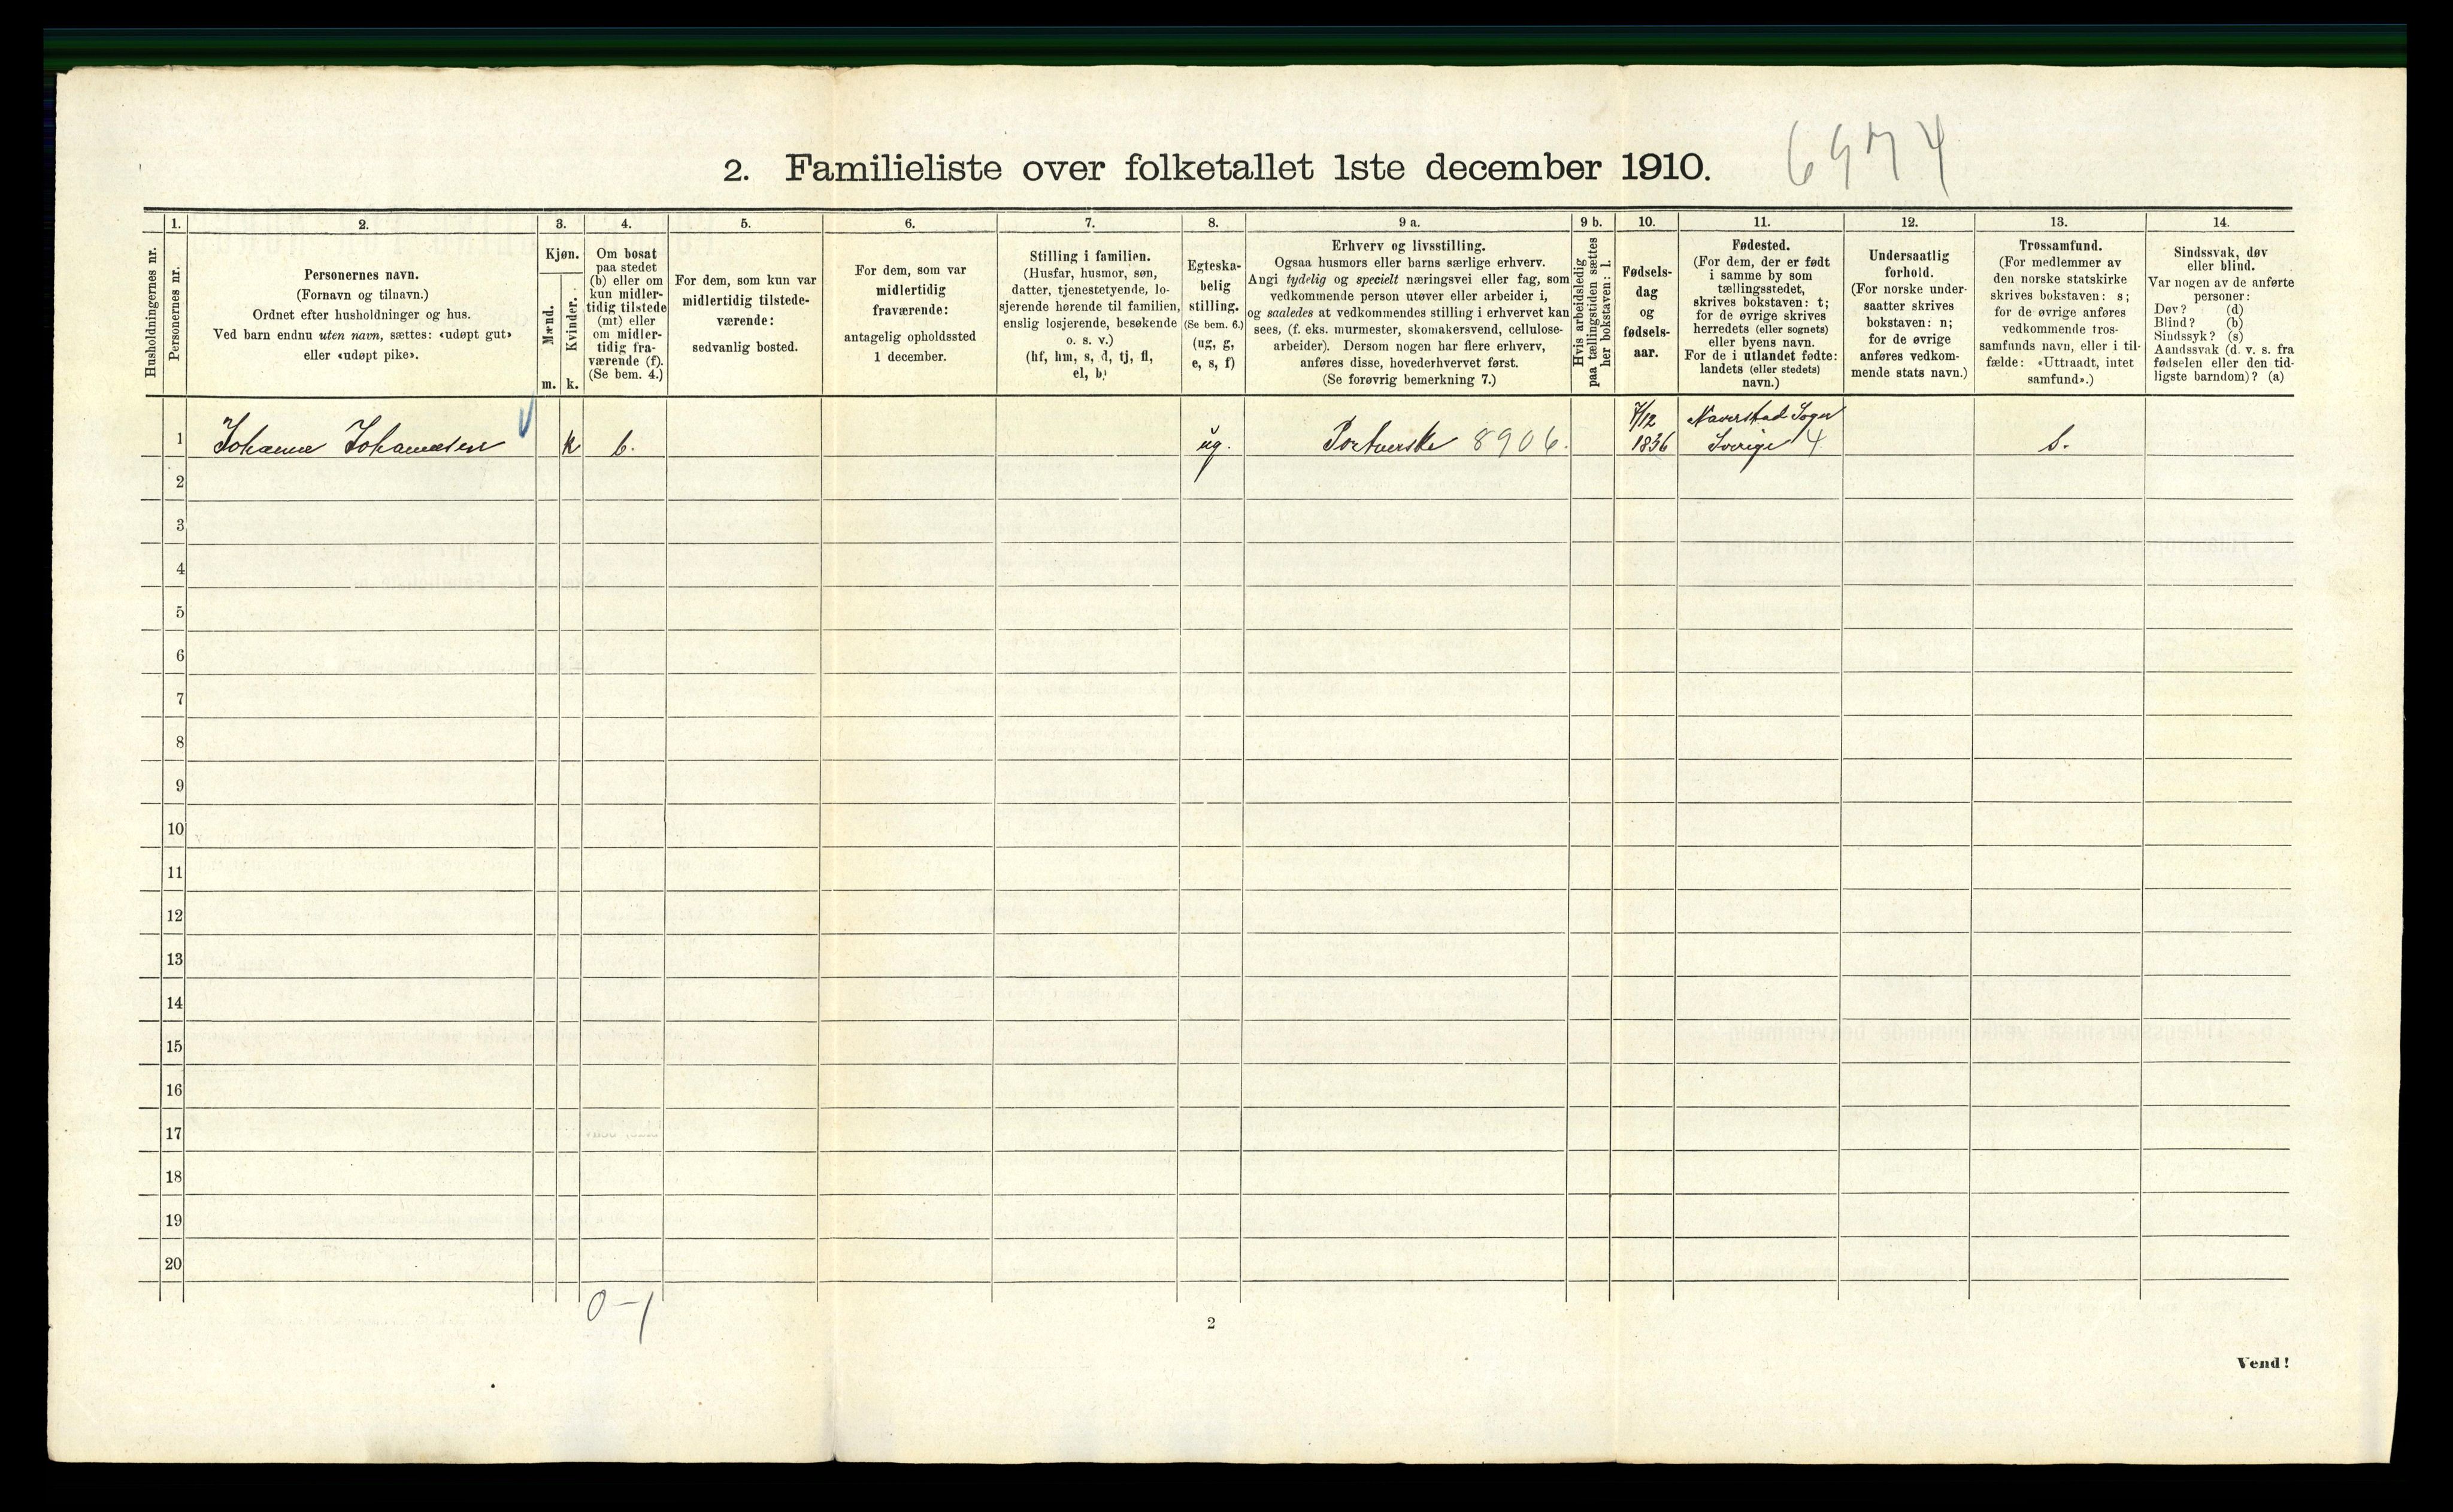 2. Familieliste over folketallet 1ste december 1910.
6974
1.
2.
3.
4.
5.
6.
7.
8.
9 a.
9 b.
10.
11.
12.
13.
14.
Husholdningernes nr.
Personernes nr.
Personernes navn.
(Fornavn og tilnavn.)
Ordnet efter husholdninger og hus.
Ved barn endnu uten navn, sættes: «udøpt gut»
eller «udøpt pike».
Kjøn.
Mænd.
Kvinder.
m.
k.
Om bosat
paa stedet
(b) eller om
kun midler-
tidig tilstede
(mt) eller
om midler-
tidig fra-
værende (f).
(Se bem. 4.)
For dem, som kun var
midlertidig tilstede-
værende:
sedvanlig bosted.
For dem, som var
midlertidig
fraværende:
antagelig opholdssted
1 december.
Stilling i familien.
(Husfar, husmor, søn,
datter, tjenestetyende, lo-
sjerende hørende til familien,
enslig losjerende, besøkende
o. s. v.)
(hf, hm, s, d, tj, fl,
el, b)
Egteska-
belig
stilling.
(Se bem. 6.)
(ug, g,
e, s, f)
Erhverv og livsstilling.
Ogsaa husmors eller barns særlige erhverv.
Angi tydelig og specielt næringsvei eller fag, som
vedkommende person utøver eller arbeider i,
og saaledes at vedkommendes stilling i erhvervet kan
sees, (f. eks. murmester, skomakersvend, cellulose-
arbeider). Dersom nogen har flere erhverv,
anføres disse, hovederhvervet først.
(Se forøvrig bemerkning 7.)
Hvis arbeidsledig
paa tællingstiden sættes
her bokstaven: l.
Fødsels-
dag
og
fødsels-
aar.
Fødested.
(For dem, der er født
i samme by som
tællingsstedet,
skrives bokstaven: t;
for de øvrige skrives
herredets (eller sognets)
eller byens navn.
For de i utlandet fødte:
landets (eller stedets)
navn.)
Undersaatlig
forhold.
(For norske under-
saatter skrives
bokstaven: n;
for de øvrige
anføres vedkom-
mende stats navn.)
Trossamfund.
(For medlemmer av
den norske statskirke
skrives bokstaven: s;
for de øvrige anføres
vedkommende tros-
samfunds navn, eller i til-
fælde: «Uttraadt, intet
samfund».)
Sindssvak, døv
eller blind.
Var nogen av de anførte
personer:
Døv? (d)
Blind? (b)
Sindssyk? (s)
Aandssvak (d. v. s. fra
fødselen eller den tid-
ligste barndom)? (a)
7/12 Naverstad Sogn
1 Johanne Johannesen k b. ug. 8906. 1836 Sverige 4 s.
2
3
4
5
6
7
8
9
10
11
12
13
14
15
16
17
18
19
20
0-1
2
Vend!